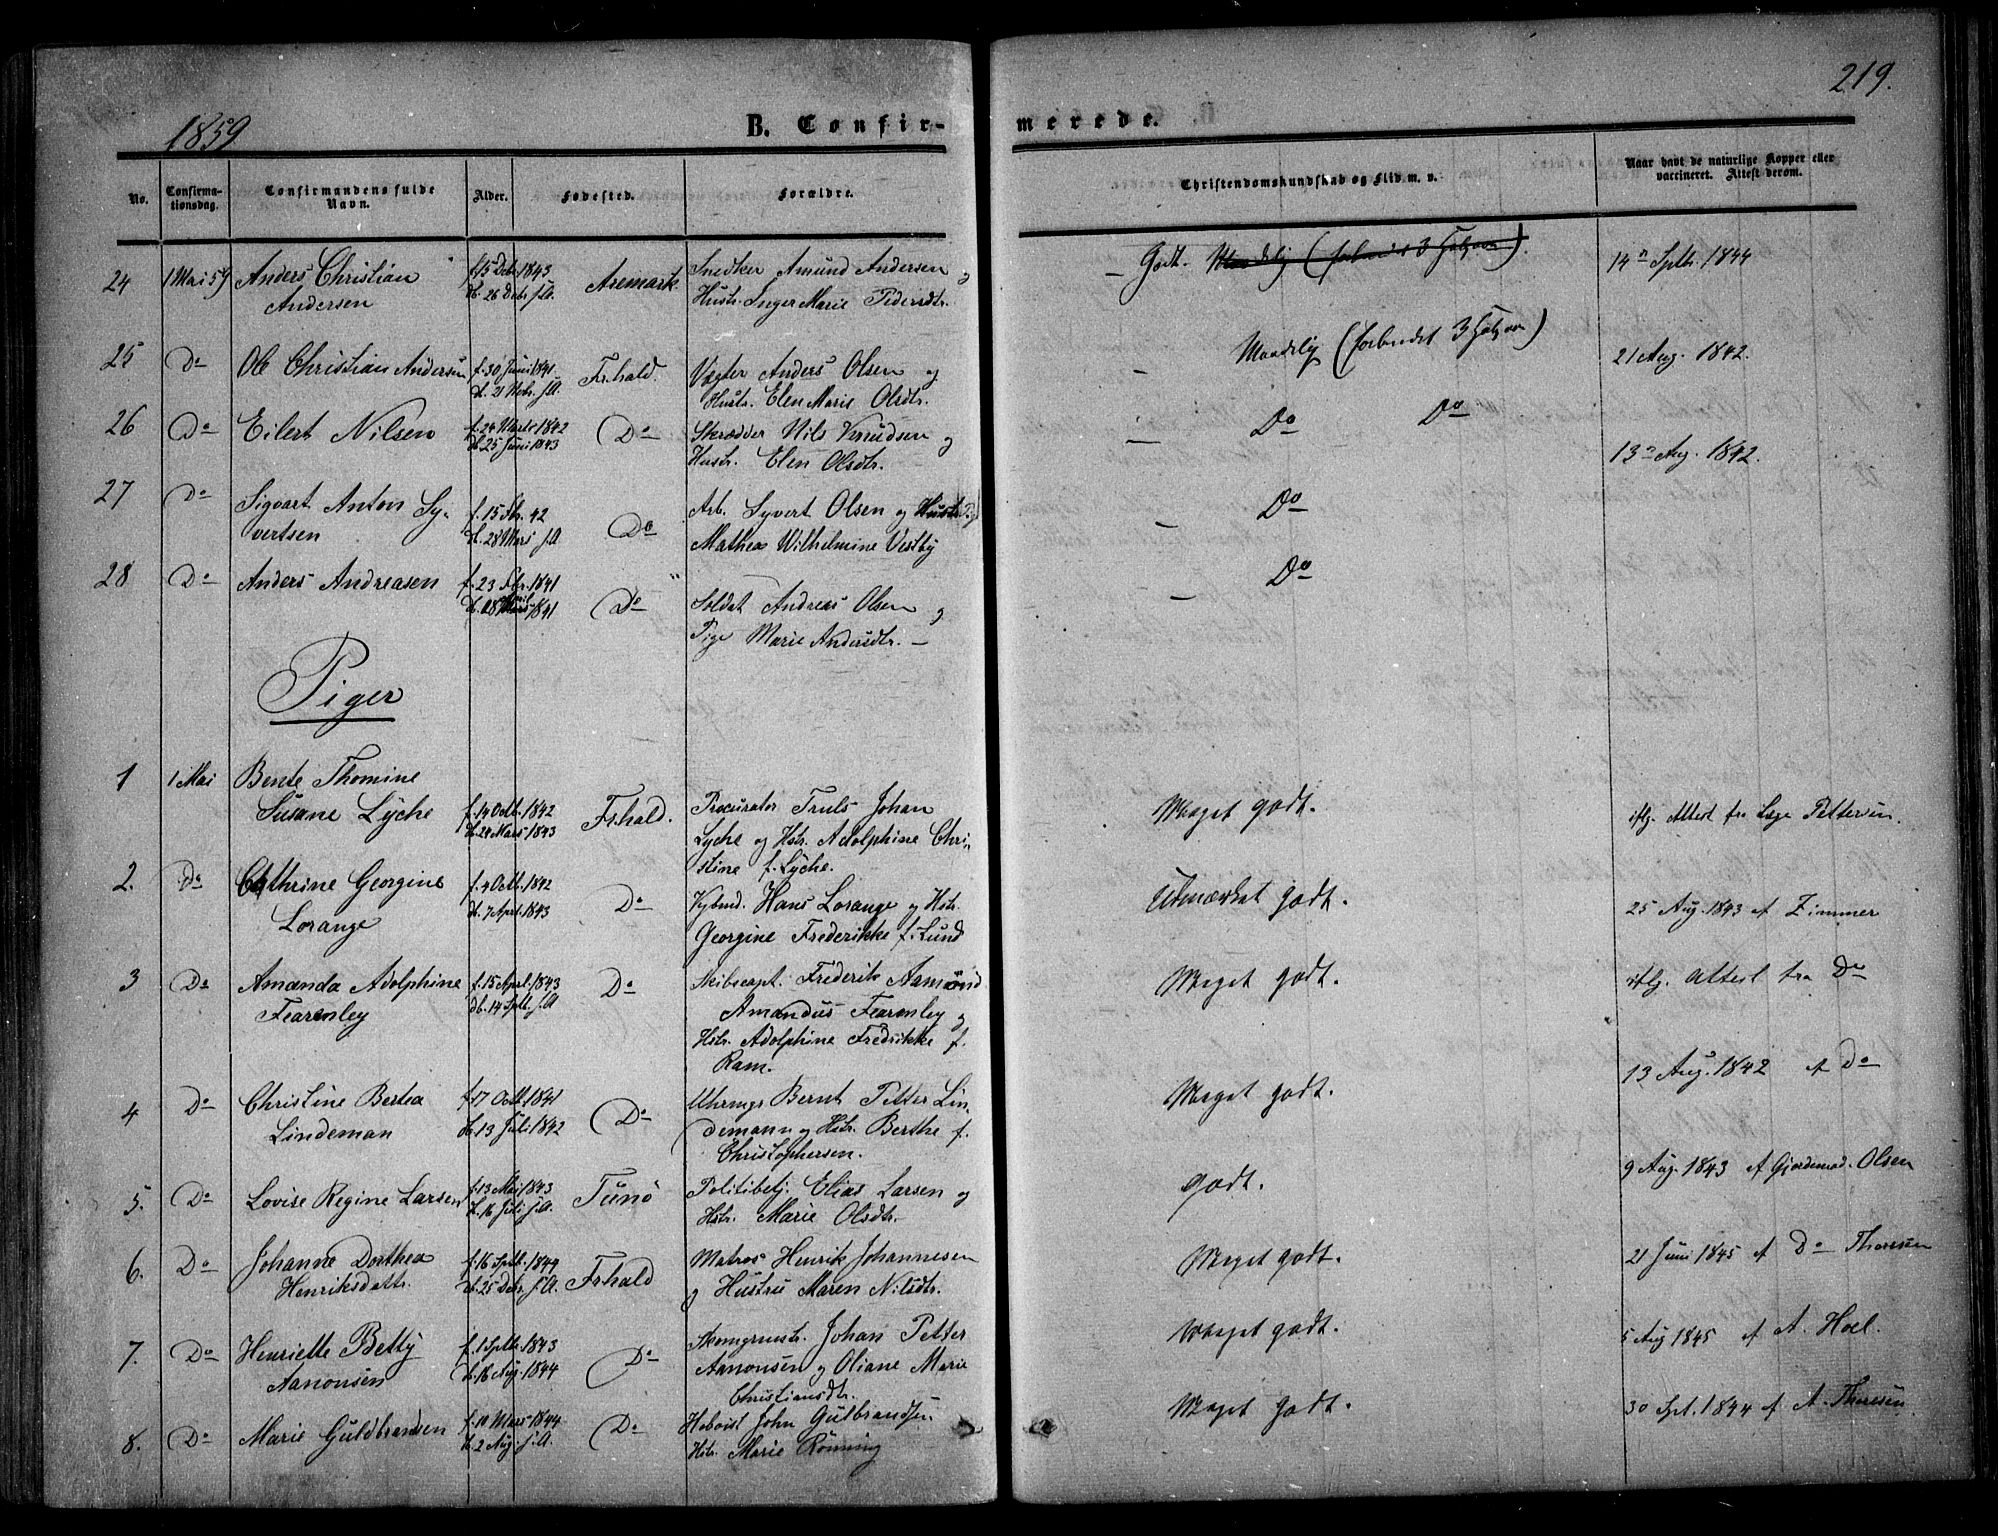 219.
1859
B. Confirmerede.
No.
Confirmationsdag.
Confirmandens fulde Navn.
Alder.
Fødested.
Forældre.
Christendomskundskab og Flid m. v.
Naar havt de naturlige Kopper eller vaccineret. Attest derom.
24 1 Mai 59 Anders Christian Andersen f. 15 Debr. 1843 d. 26 Debr. f.A. Aremark Snedker Amund Andersen og Hustr. Inger Marie Pedersdtr. — Godt. Maadelig (forberedt 3 Halvaar). 14de Sptbr. 1844
25 Do Ole Christian Andersen f. 30 Juni 1841 d. 21 Nobr. f.A. Fr.hald. Vægter Anders Olsen og Hustr. Elen Marie Olsdtr. — Maadelig (forberedt 3 Halvaar) 21 Aug. 1842.
26 Do Eilert Nilsen f. 24 Marts 1842 d. 25 Juni 1843 Do Skrædder Nils Knudsen og Hustr. Elen Olsdtr. — Do Do 13de Aug. 1842.
27 Do Sigvart Anton Syvertsen f. 15 Fbr. 42 d. 28 Mars f.A Do Arb. Syvert Olsen og Mathea Wilhelmine Vestby — Do
28 Do Anders Andreasen f. 23 Fbr. 1841 d. 1841 Do Soldat Andreas Olsen og Pige Marie Andersdtr. — — Do
Piger
1 1 Mai Bente Thomine Susane Lyche f. 14 Octb. 1842 d. 24 Mars 1843 Fr.hald. Procurator Truls Johan Lyche og Hstr. Adolphine Christine f. Lyche. Meget godt. iflg. Attest fra Læge Pettersen
2. Do Cathrine Georgine Lorange f. 4 Octb. 1842 d. 7 Apr. 1843 Do Kjbmd. Hans Lorange og Hstr. Georgine Frederikke f. Lund Udmærket godt. 25 Aug. 1843 af Zimmer
3 Do Amanda Adolphine Fearenley f. 15 Apr. 1843 db. 14 Sptb. f.A Do Skibscapt. Frederik Aamund Amandus Fearenley og Hstr. Adolphine Fredrikke f. Ram. Meget godt. iflg. Attest fra Do
4 Do Christine Bertea Lindeman f. 17 Octb. 1841 db. 13 Juli 1842 Do Bernt Petter Lindemann og Hstr. Berthe f. Christophersen. Meget godt. 13 Aug. 1842 af Do
5. Do Lovise Regine Larsen f. 13 Mai 1843 d. 16 Juli f.A. Tunø Politibetj. Elias Larsen og Hstr. Marie Olsdtr. godt. 9 Aug. 1843 af Gjordemod. Olsen
6. Do Johanne Dorthea Henriksdattr. f. 16 Sptb. 1844 d. 25 Debr. f.A. Fr.hald Matros Henrik Johannesen og Hustru Maren Nilsdtr. Meget godt. 21 Juni 1845 af Do Thoresen
7. Do Henriette Betty Aanonsen f. 1 Sptb. 1843 d. 16 Aug. 1844 Do Johan Petter Aanonsen og Oliane Marie Christiansdtr. Meget godt. 5 Aug 1845 af A. Hoel.
8. Do Marie Guldbrandsen f. 10 Mars 1844 d. 2 Aug. f.A. Do Hoboist John Gulbrandsen Hstr. Marie Rønning Meget godt. 30 Spt. 1844 af A. Thoresen